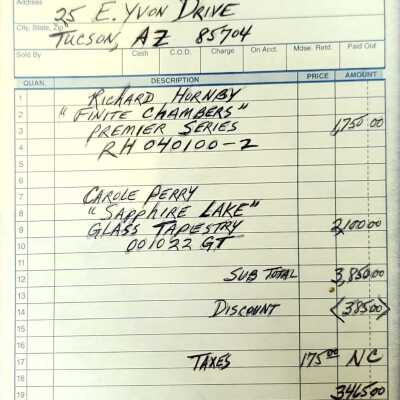 Address
25 E. YVON DRIVE
City, State, Zip
TUCSON, AZ 85704
Sold By Cash C.O.D. Charge On Acct. Mdse. Retd. Paid Out
QUAN. DESCRIPTION PRICE AMOUNT
1 RICHARD HORNBY
2 "FINITE CHAMBERS"
3 PREMIER SERIES 1,750.00
4 RH 040100-2
5
6
7 CAROLE PERRY
8 "SAPPHIRE LAKE"
9 GLASS TAPESTRY 2,100.00
10 001022 GT
11
12 SUB TOTAL 3,850.00
13
14 DISCOUNT <385.00>
15
16
17 TAXES 175.00 NC
18
19 3465.00